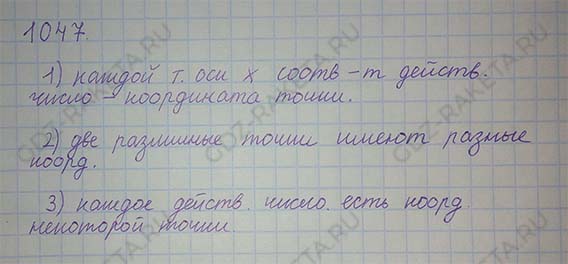 1047.
1) каждой т. оси x соотв-т действ.
число – координата точки.
2) две различные точки имеют разные
коорд.
3) каждое действ. число есть коорд.
некоторой точки
GDZ-RAKETA.RU